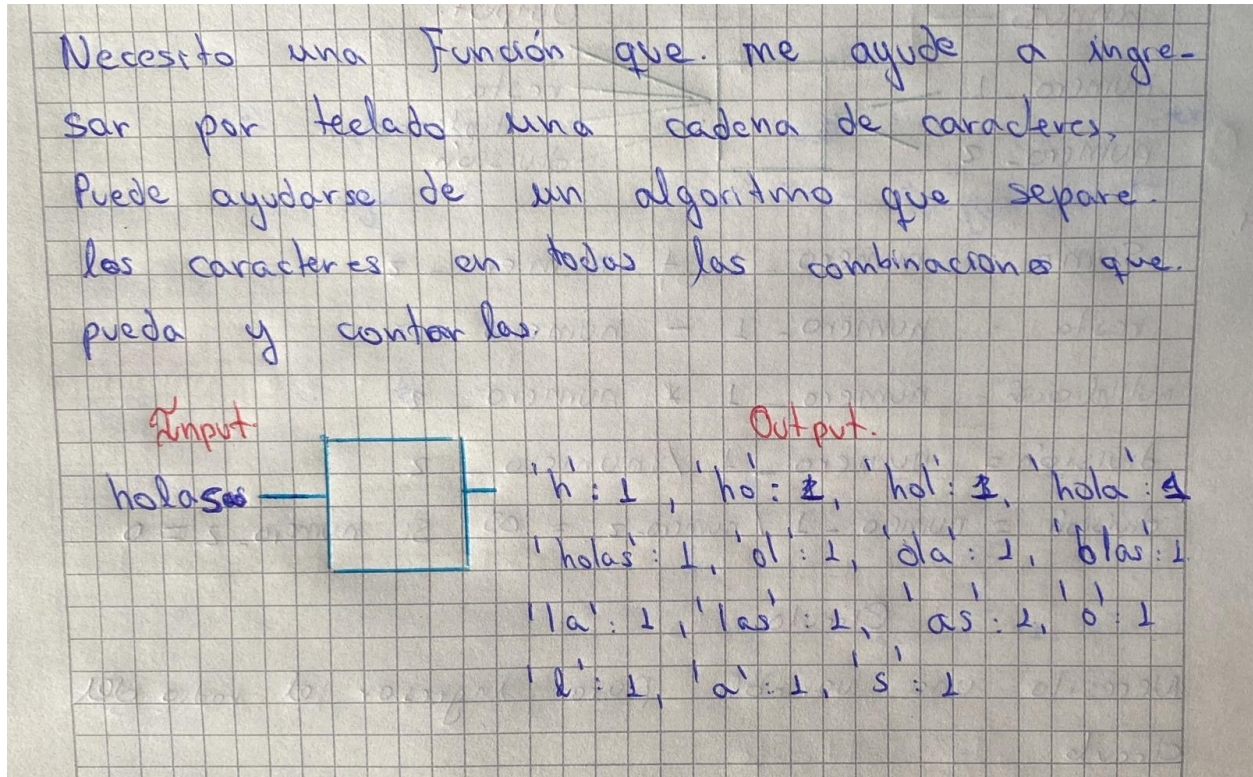 Necesito una Función que. me ayude a ingre-
sar por teclado una cadena de caracteres.
Puede ayudarse de un algoritmo que separe.
los caracteres en todas las combinaciones que.
pueda y contar las.
Input Output.
holas 'h': 1, 'ho': 1, 'hol': 1, 'hola': 1
'holas': 1, 'ol': 1, 'ola': 1, 'olas': 1
'la': 1, 'las': 1, 'as': 1, 'o': 1
'l': 1, 'a': 1, 's': 1